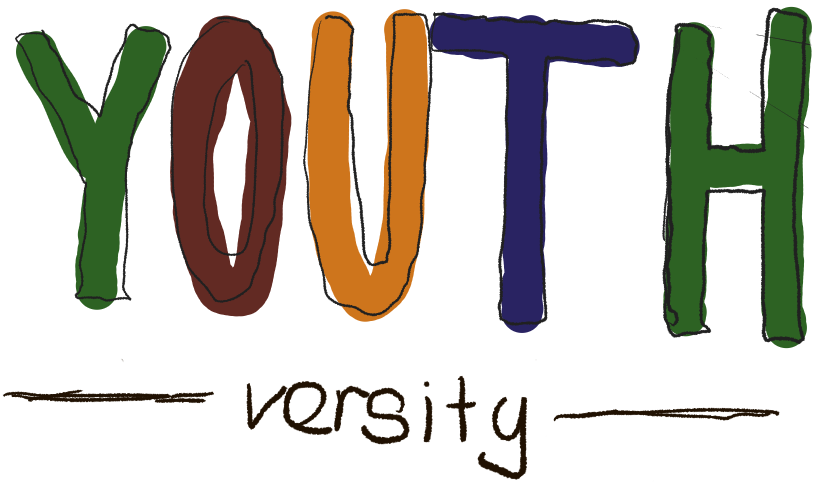 YOUTH
versity